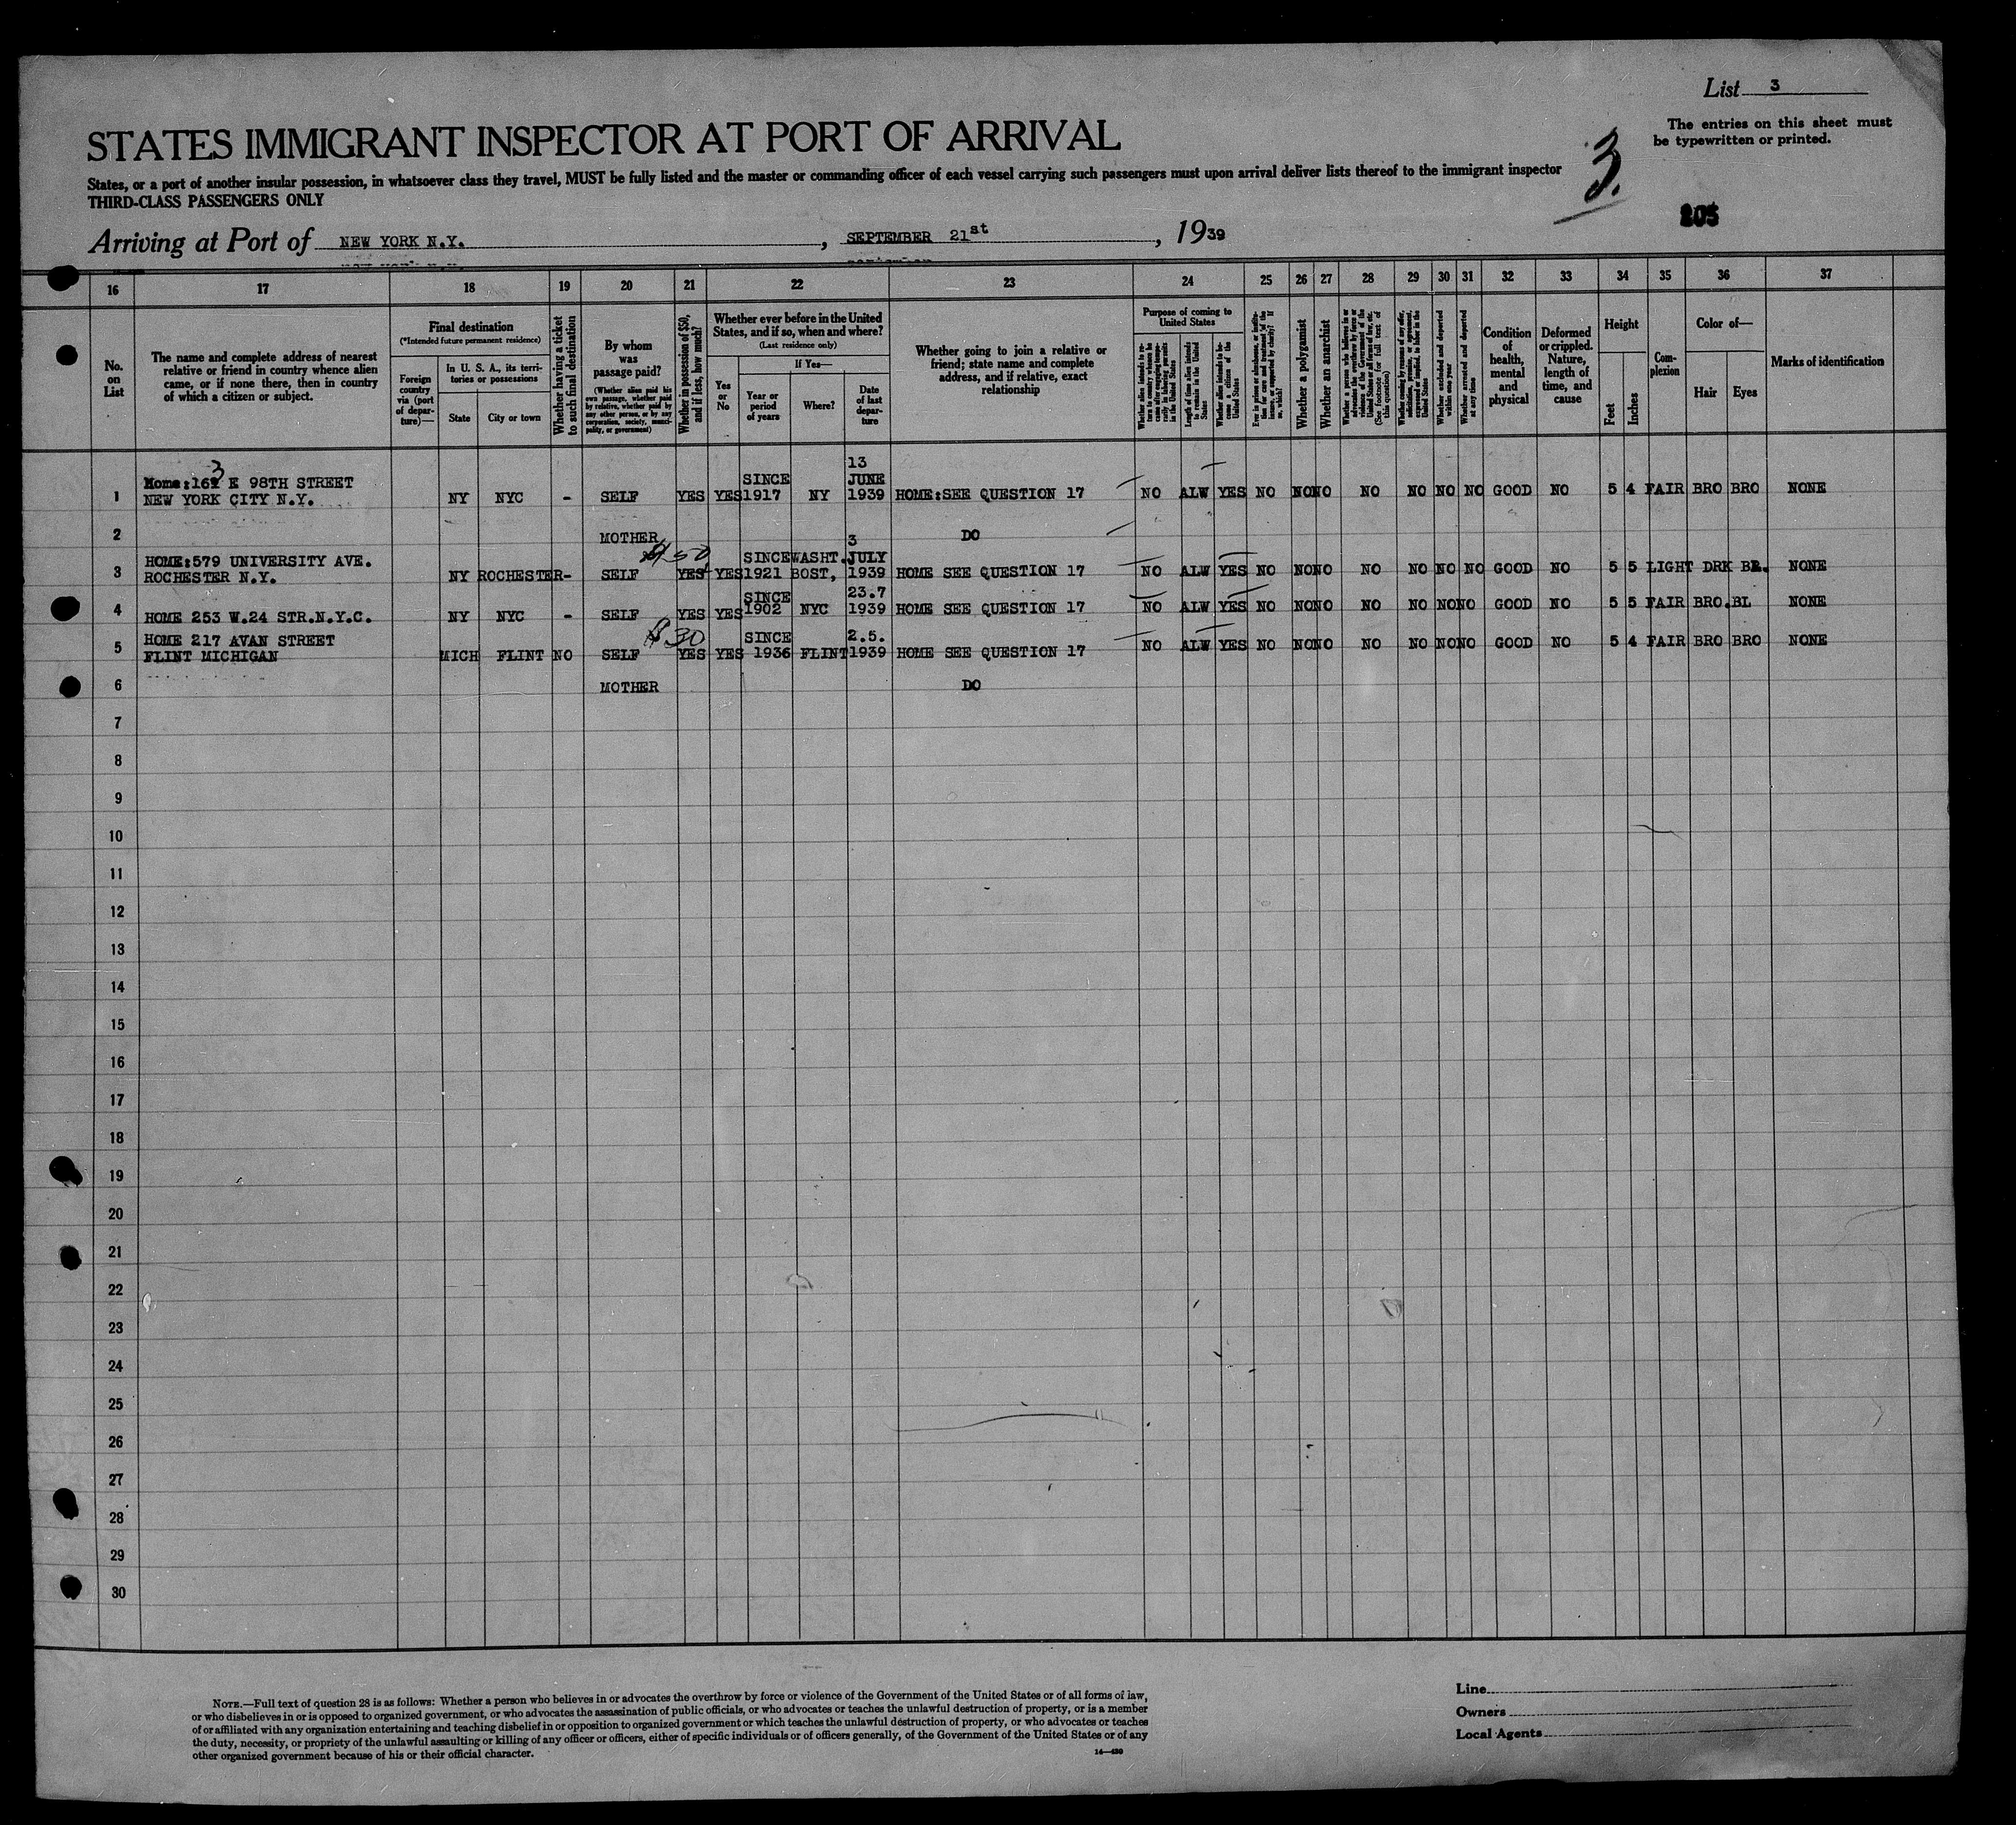 List 3
The entries on this sheet must
be typewritten or printed.
3.
205
STATES IMMIGRANT INSPECTOR AT PORT OF ARRIVAL
States, or a port of another insular possession, in whatsoever class they travel, MUST be fully listed and the master or commanding officer of each vessel carrying such passengers must upon arrival deliver lists thereof to the immigrant inspector
THIRD-CLASS PASSENGERS ONLY
Arriving at Port of NEW YORK N.Y., SEPTEMBER 21st, 1939
16 17 18 19 20 21 22 23 24 25 26 27 28 29 30 31 32 33 34 35 36 37
No.
on
List
The name and complete address of nearest
relative or friend in country whence alien
came, or if none there, then in country
of which a citizen or subject.
Final destination
(*Intended future permanent residence)
Foreign
country
via (port
of depar-
ture)—
In U. S. A., its terri-
tories or possessions
State
City or town
Whether having a ticket
to such final destination
By whom
was
passage paid?
(Whether alien paid his
own passage, whether paid
by relative, whether paid by
any other person, or by any
corporation, society, munici-
pality, or government)
Whether in possession of $50,
and if less, how much?
Whether ever before in the United
States, and if so, when and where?
(Last residence only)
Yes
or
No
If Yes—
Year or
period
of years
Where?
Date
of last
depar-
ture
Whether going to join a relative or
friend; state name and complete
address, and if relative, exact
relationship
Purpose of coming to
United States
Whether alien intends to re-
turn to country whence he
came after engaging tempo-
rarily in laboring pursuits
in the United States
Length of time alien intends
to remain in the United
States
Whether alien intends to be-
come a citizen of the
United States
Ever in prison or almshouse, or institu-
tion for care and treatment of the
insane, or supported by charity? If
so, which?
Whether a polygamist
Whether an anarchist
Whether a person who believes in or
advocates the overthrow by force or
violence of the Government of the
United States or all forms of law, etc.
(See footnote for full text of
this question)
Whether coming by reason of any offer,
solicitation, promise, or agreement,
expressed or implied, to labor in the
United States
Whether excluded and deported
within one year
Whether arrested and deported
at any time
Condition
of
health,
mental
and
physical
Deformed
or crippled.
Nature,
length of
time, and
cause
Height
Feet
Inches
Com-
plexion
Color of—
Hair
Eyes
Marks of identification
13
3
Home:162 E 98TH STREET SINCE JUNE
1 NEW YORK CITY N.Y. NY NYC - SELF YES YES 1917 NY 1939 HOME:SEE QUESTION 17 NO ALW YES NO NO NO NO NO NO NO GOOD NO 5 4 FAIR BRO BRO NONE
2 MOTHER DO
3
$50
HOME:579 UNIVERSITY AVE. SINCE WASHT. JULY
3 ROCHESTER N.Y. NY ROCHESTER- SELF YES YES 1921 BOST, 1939 HOME SEE QUESTION 17 NO ALW YES NO NO NO NO NO NO NO GOOD NO 5 5 LIGHT DRK BL. NONE
SINCE 23.7
4 HOME 253 W.24 STR.N.Y.C. NY NYC - SELF YES YES 1902 NYC 1939 HOME SEE QUESTION 17 NO ALW YES NO NO NO NO NO NO NO GOOD NO 5 5 FAIR BRO.BL NONE
HOME 217 AVAN STREET $30 SINCE 2.5.
5 FLINT MICHIGAN MICH FLINT NO SELF YES YES 1936 FLINT 1939 HOME SEE QUESTION 17 NO ALW YES NO NO NO NO NO NO NO GOOD NO 5 4 FAIR BRO BRO NONE
6 MOTHER DO
7
8
9
10
11
12
13
14
15
16
17
18
19
20
21
22
23
24
25
26
27
28
29
30
NOTE.—Full text of question 28 is as follows: Whether a person who believes in or advocates the overthrow by force or violence of the Government of the United States or of all forms of law,
or who disbelieves in or is opposed to organized government, or who advocates the assassination of public officials, or who advocates or teaches the unlawful destruction of property, or is a member
of or affiliated with any organization entertaining and teaching disbelief in or opposition to organized government or which teaches the unlawful destruction of property, or who advocates or teaches
the duty, necessity, or propriety of the unlawful assaulting or killing of any officer or officers, either of specific individuals or of officers generally, of the Government of the United States or of any
other organized government because of his or their official character.
14—430
Line
Owners
Local Agents